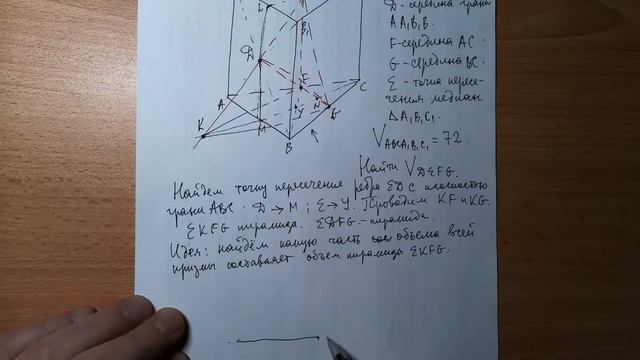 D - середина грани
AA₁B₁B.
F - середина AC.
G - середина BC.
E - точка пересе-
чения медиан
△A₁B₁C₁
V ABCA₁B₁C₁ = 72.
Найти V DEFG.
L
B₁
D
A
F
C
K
M
Y
N
G
B
Найдем точку пересечения ребра ED с плоскостью
грани ABC. D → M; E → Y. Проводим KF и KG.
EKFG пирамида. EDFG - пирамида.
Идея: найдём какую часть объема всей
призмы составляет объем пирамиды EKFG.